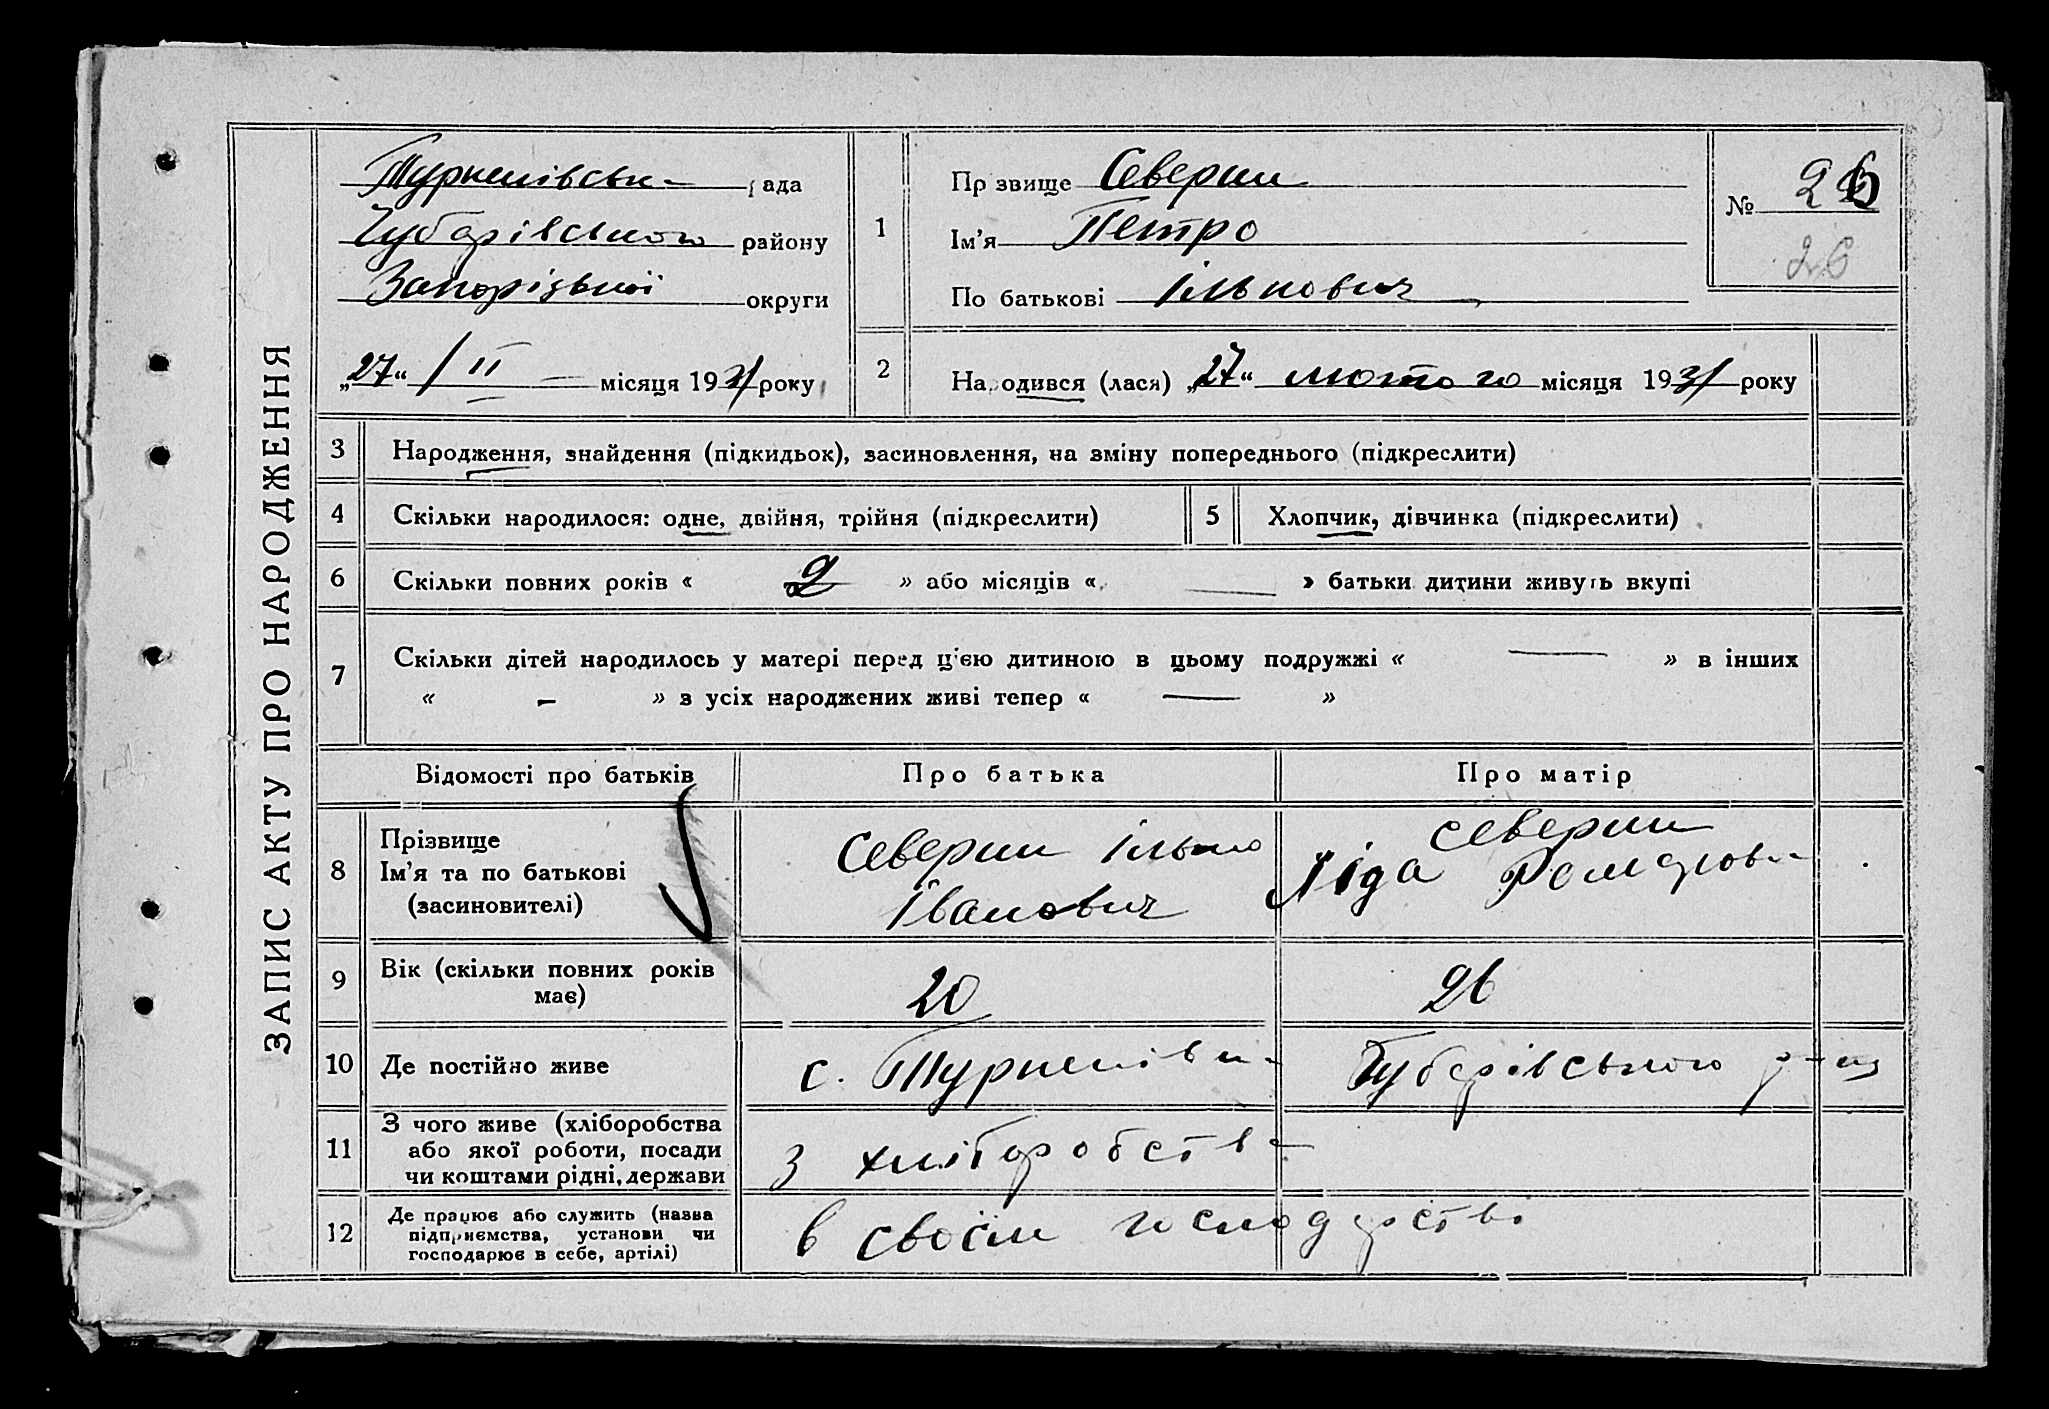 ЗАПИС АКТУ ПРО НАРОДЖЕННЯ
Туркенівськ рада
Чубарівського району
Запорізької округи
„27“ / II місяця 1931 року
1
Прізвище Северин
Ім’я Петро
По батькові Ількович
№ 26
26
2
Народився (лася) „27“ лютого місяця 1931 року
3 Народження, знайдення (підкидьок), засиновлення, на зміну попереднього (підкреслити)
4 Скільки народилося: одне, двійня, трійня (підкреслити)
5 Хлопчик, дівчинка (підкреслити)
6 Скільки повних років « 2 » або місяців « — » батьки дитини живуть вкупі
7 Скільки дітей народилось у матері перед ц’єю дитиною в цьому подружжі « — » в інших
« – » з усіх народжених живі тепер « — »
Відомості про батьків
Про батька
Про матір
8 Прізвище
Ім’я та по батькові
(засиновителі)
Северин Ілько
Іванович
Северин
Ліда
9 Вік (скільки повних років
має)
20
26
10 Де постійно живе
с. Туркенівка Чубарівського р-ну
11 З чого живе (хліборобства
або якої роботи, посади
чи коштами рідні, держави
з хліборобства
12 Де працює або служить (назва
підприємства, установи чи
господарює в себе, артілі)
в своїм господарстві